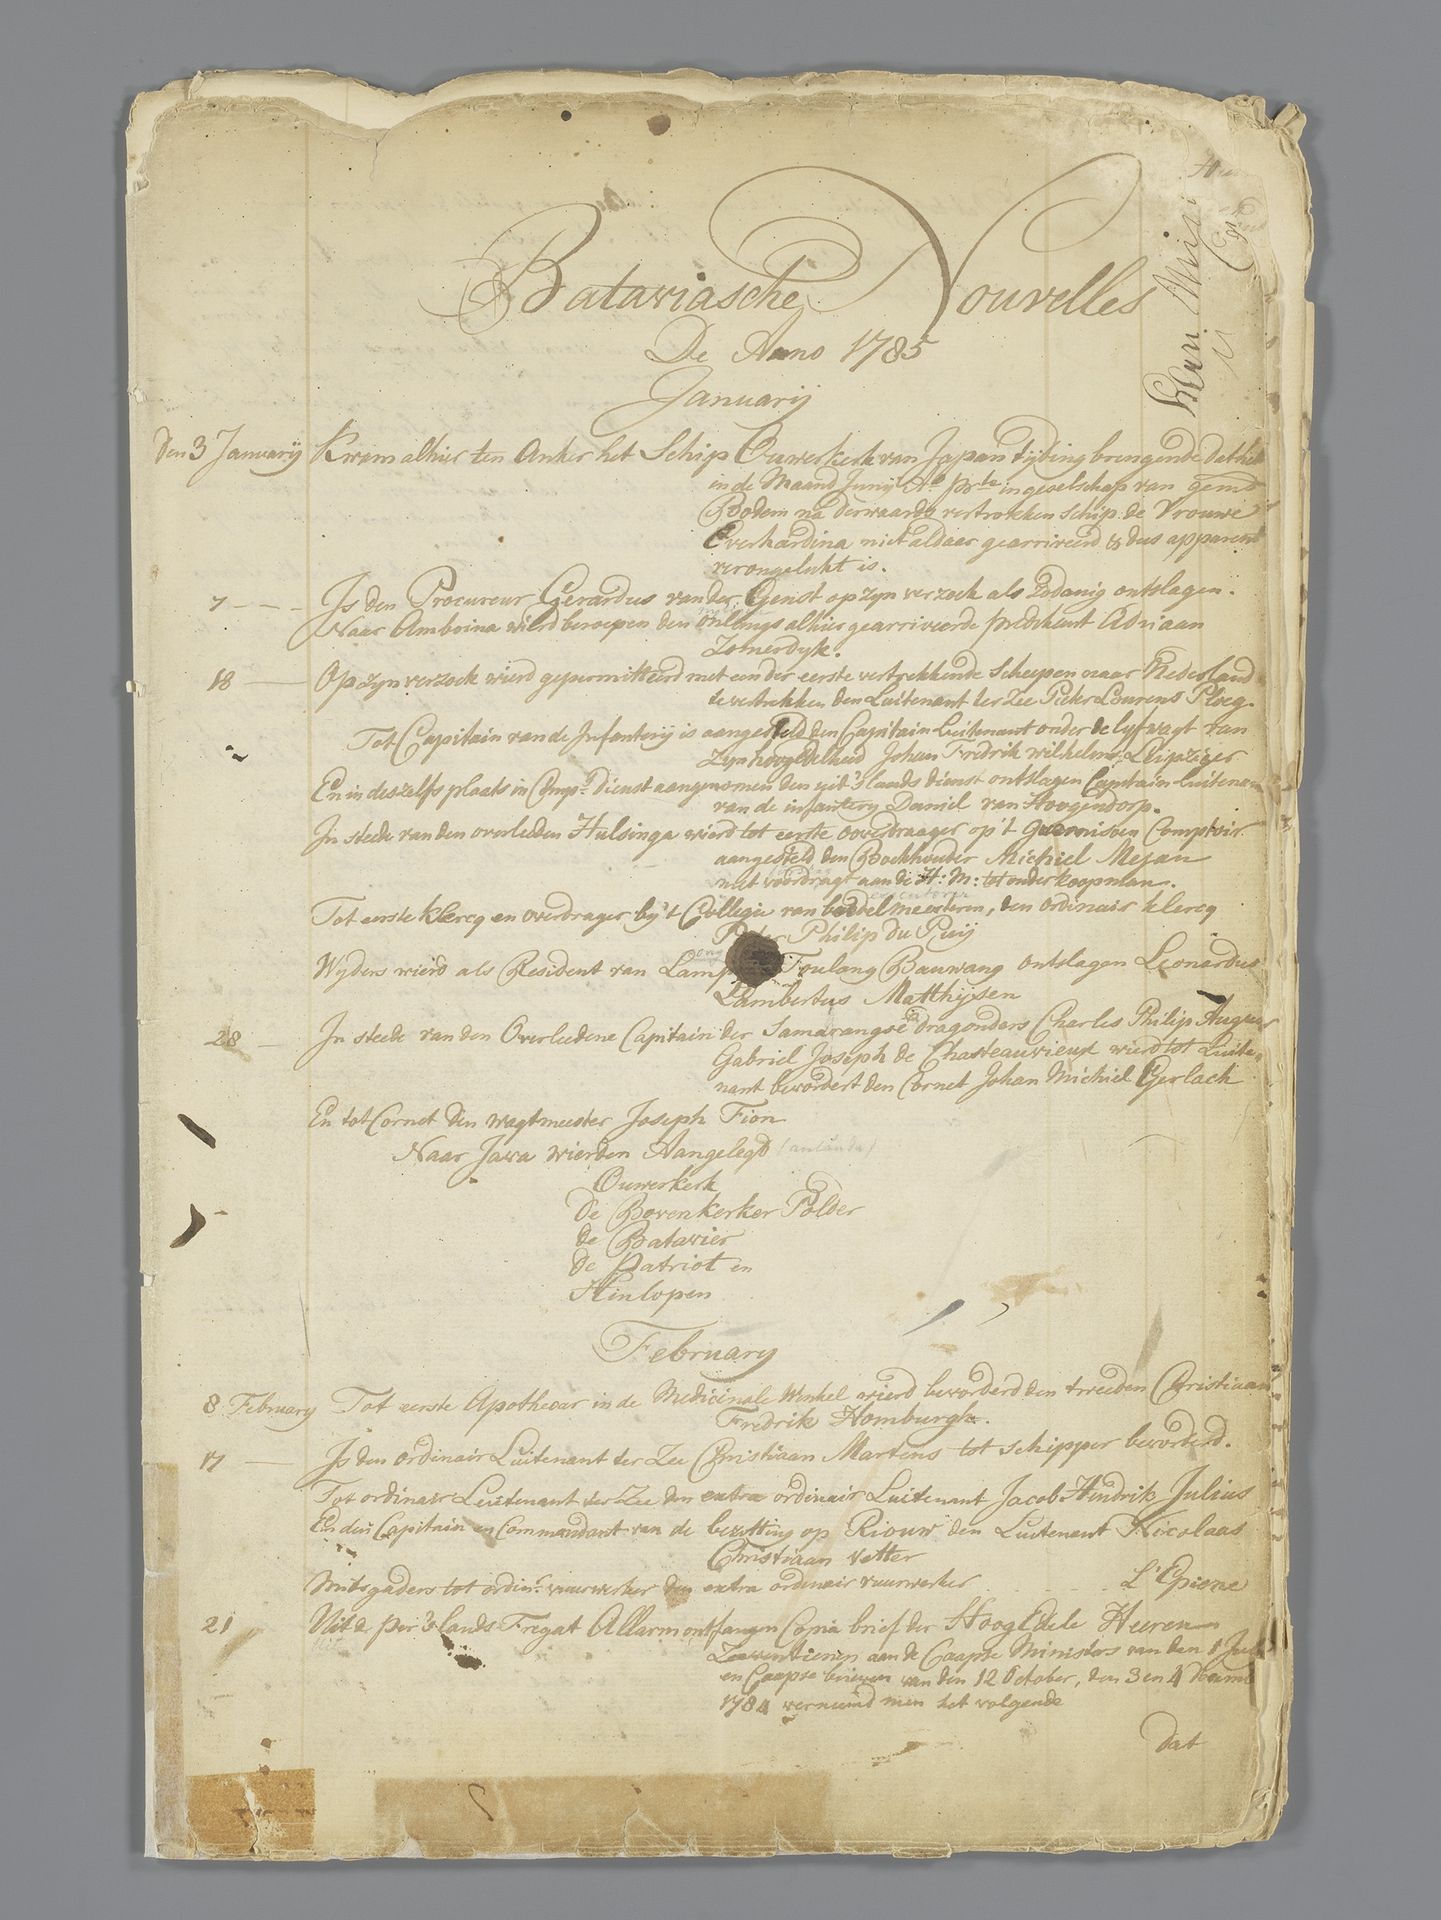 Bataviasche Nouvelles
De Anno 1785
Januarij
Den 3 Januarij Kwam alhier ten Anker het Schip Ouwerkerk van Japan tijding brengende dat het
in de Maand Junij Ao. in geselschap van gemd.
Bodem na derwaards vertrokken schip de Vrouwe
Everhardina niet aldaar gearriveerd & dus apparent
verongelukt is.
7 Is den Procureur Gerardus van der Genst op zyn verzoek als Zodanig ontslagen.
Naar Amboina wierd beroepen den onlangs alhier gearriveerde predikant Adriaan
Zomerdyk.
18 Op zyn verzoek wierd gepermitteerd met een der eerste vertrekkende scheepen naar Nederland
te vertrekken den Luitenant ter Zee Pieter Lourens Ploeg.
Tot Capitain van de Infanterij is aangesteld den Capitain Luitenant onder de lyfwagt van
zyn hoogEdelheid Johan Fredrik wilhelm Leipziger
En in deszelfs plaats in Comps. dienst aangenomen den uit 's lands dienst ontslagen Capitain Luitenant
van de infantery Daniel van Hoogendorp.
In steede van den overleeden Hulsinga wierd tot eerste overdraager op 't Guarnisoen Comptoir
aangesteld den Boekhouder Michiel Mejan
met voordragt aan de H: M: tot onderkoopman.
Tot eerste klercq en overdrager by 't Collegie van boedelmeesteren, den ordinair klercq
Pieter Philip Du Puij
Wyders wierd als Resident van Lampong Toulang Bauwang ontslagen Leonardus
Lambertus Matthijsen
28 In steede van den Overleedene Capitain der Samarangse dragonders Charles Philip August
Gabriel Joseph de Chasteauvieux wierd tot Luite=
nant bevordert den Cornet Johan Michiel Gerlach
En tot Cornet den wagtmeester Joseph Fion
Naar Java wierden Aangelegd
Ouwerkerk
De Bovenkerker Polder
de Batavier
de Patriot en
Hinlopen
February
8 February Tot eerste Apothecar in de Medicinale Winkel wierd bevorderd den tweeden Christiaan
Fredrik Homburgh.
17 Is den ordinair Luitenant ter Zee Christiaan Martens tot schipper bevorderd.
Tot ordinair Luitenant ter Zee den extra ordinair Luitenant Jacob Hindrik Julius
En den Capitain en Commandant van de bezetting op Riouw den Luitenant Nicolaas
Christiaan Vetter
Mitsgaders tot ordinr. vuurwerker den extra ordinair vuurwerker L'Epione
21 Uit de per 's lands Fregat Allarm ontfangen Copia brief der HoogEdele Heeren
Zeeventienen aan de Caapse Ministers van den
en Caapse brieven van den 12 October, den 3 en 4
1784 verneemd men het volgende
dat